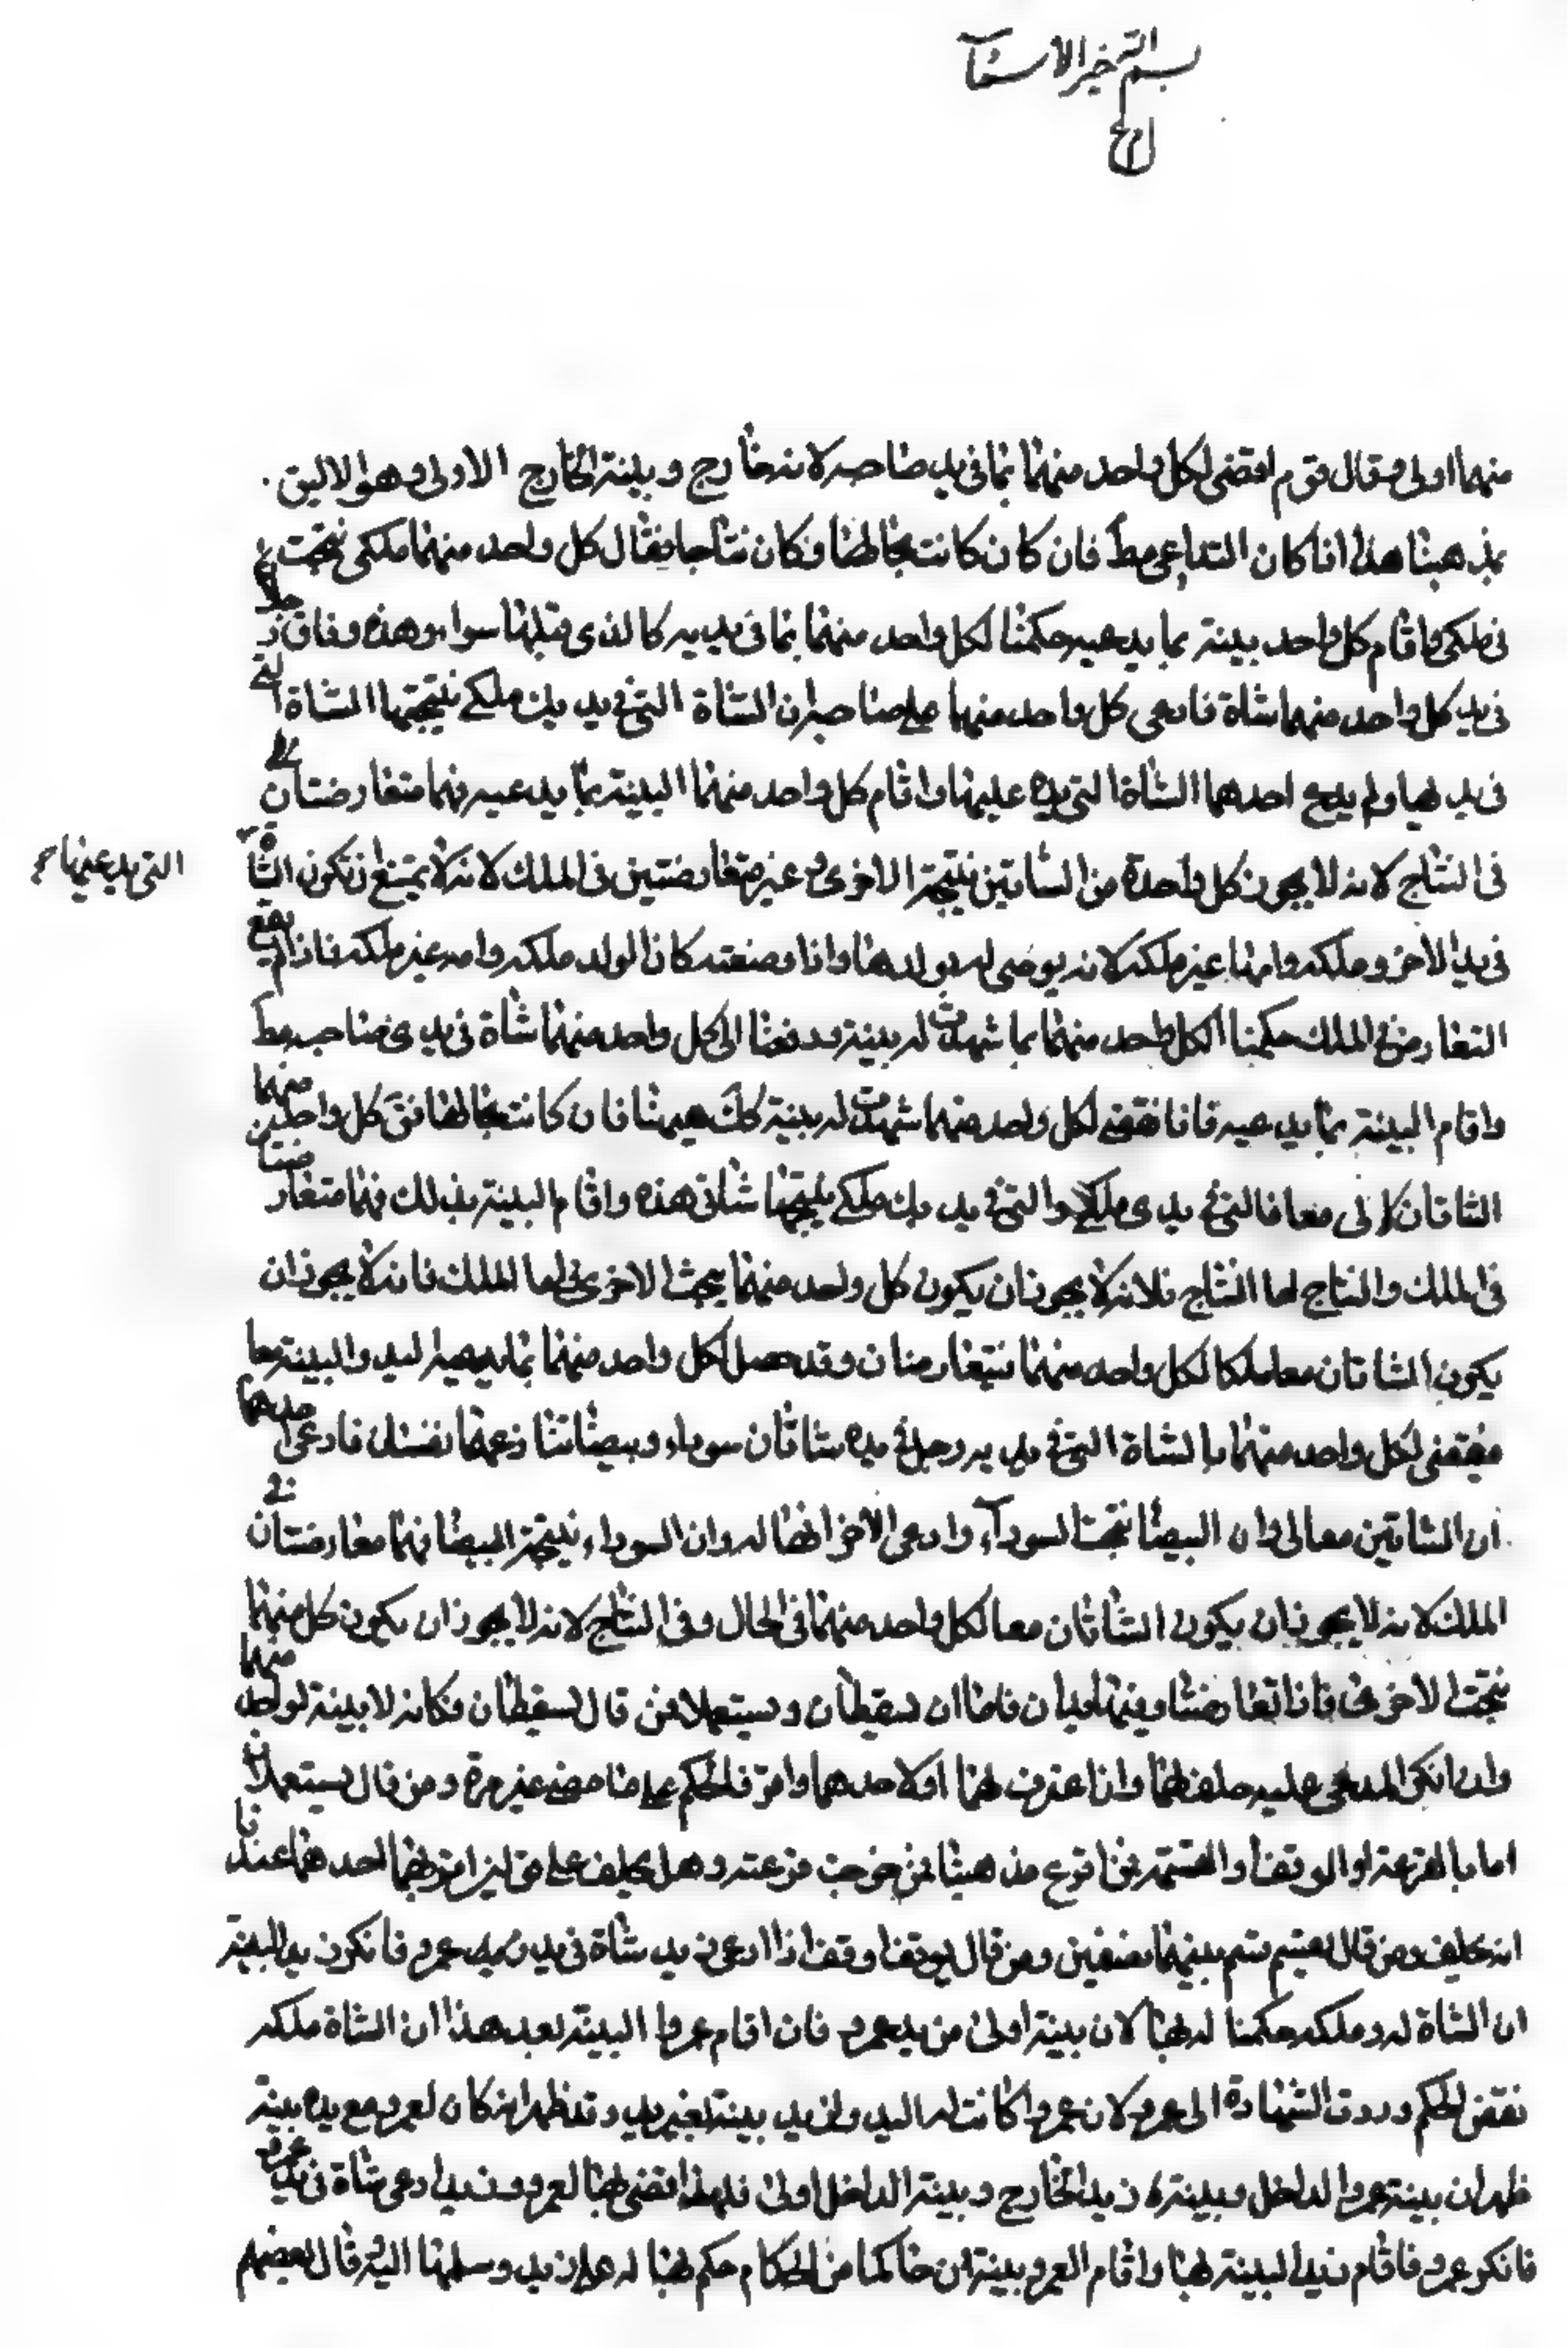 بسم الله خير الاسماء
منهما اولى وقال قوم اقضى لكل واحد منهما بما فى يد صاحبه لانه خارج وبينة الخارج الاولى وهو الاليق
بمذهبنا هذا اذا كان التداعى مط فان كان كانت بحالهما فكان نتاجا فقال كل واحد منهما ملكى نتجت
فى ملكى واقام كل واحد بينة بما يدعيه حكمنا لكل واحد منهما بما فى يديه كالذى قبلها سواء وهذه وفاق
فى يد كل واحد منهما شاة فادعى كل واحد منهما على صاحبه ان الشاة التى فى يديك ملكى نتجتها الشاة التى
فى يدى ولم يدع احدهما الشاة التى يده عليها واقام كل واحد منهما البينة بما يدعيه فهما متعارضتان
فى النتاج لانه لا يجوز كل واحدة من الشاتين نتيجة الاخرى وغير متعارضتين فى الملك لانه لا يمتنع ان تكون الشاة
التى يدعيها
فى يد الاخر وملكه وامها غير ملكه لانه يوصى له بولدها واذا وضعته كان الولد ملكه وامه غير ملكه فاذا لم يقع
التعارض فى الملك حكمنا لكل واحد منهما بما شهدت له بينة ودفعنا الى كل واحد منهما شاة فى يدى صاحبه مط
واقام البينة بما يدعيه فانا نقضى لكل واحد منهما شهدت له بينة كك هيهنا فان كانت بحالها فق كل واحد منهما
الشاتان لى معا فالتى فى يدى ملكى والتى فى يديك ملكى نتجتها شاتى هذه واقام البينة بذلك فهما متعارضتان
فى الملك والنتاج اما النتاج فلانه لا يجوز ان يكون كل واحد منهما نتجت الاخرى اما الملك فانه لا يجوز ان
يكون الشاتان معا ملكا لكل واحد منهما فيتعارضان وقد حصل لكل واحد منهما بما يدعيه اليد والبينة معا
فيقضى لكل واحد منهما بالشاة التى فى يديه رجل فى يده شاتان سوداء وبيضاء تنازعهما نفسان فادعى احدهما
ان الشاتين معا لى وان البيضا نتجت السوداء وادعى الاخر انهما له وان السوداء نتيجة البيضا فهما متعارضتان فى
الملك لانه لا يجوز ان يكون الشاتان معا لكل واحد منهما فى الحال وفى النتاج لانه لا يجوز ان يكون كل منهما
نتجت الاخرى فاذا تعارضتا ففيهما قولان فاما ان يسقطان ويستعملا فمن قال يسقطان فكانه لا بينة لواحد منهما
وان انكر المدعى عليه حلف لهما وان اعترف لهما او لاحدهما وامر فالحكم على ما مضى غير مرة ومن قال يستعملان
اما بالقرعة او الوقف او القسمة فمن اقرع مذهبنا فمن خرجت قرعته وهل يحلف على قولين اقويهما عندنا
انه يحلف ومن قال يقسم قسم بينهما نصفين ومن قال يوقف اوقف اذا ادعى زيد شاة فى يد عمرو فانكر زيد البينة
ان الشاة له وملكه حكمنا له بها لان بينة اولى من يد عمرو فان اقام عمروا البينة بعد هذا ان الشاة ملكه
نقض الحكم وردت الشهادة الى عمرو لان عمروا كانت له اليد ولزيد بينة بغير يد وقد ظهر انه كان لعمرو مع يده بينة
ظهر ان بينة عمرو الداخل وبينة زيد الخارج وبينة الداخل اولى فلهذا اقضى بها لعمرو وزيد ادعى شاة فى يد عمرو
فانكر عمرو فاقام زيد البينة بها واقام العمرو بينة ان حاكما من الحكام حكم بها له على زيد وسلمها اليه قال بعضهم